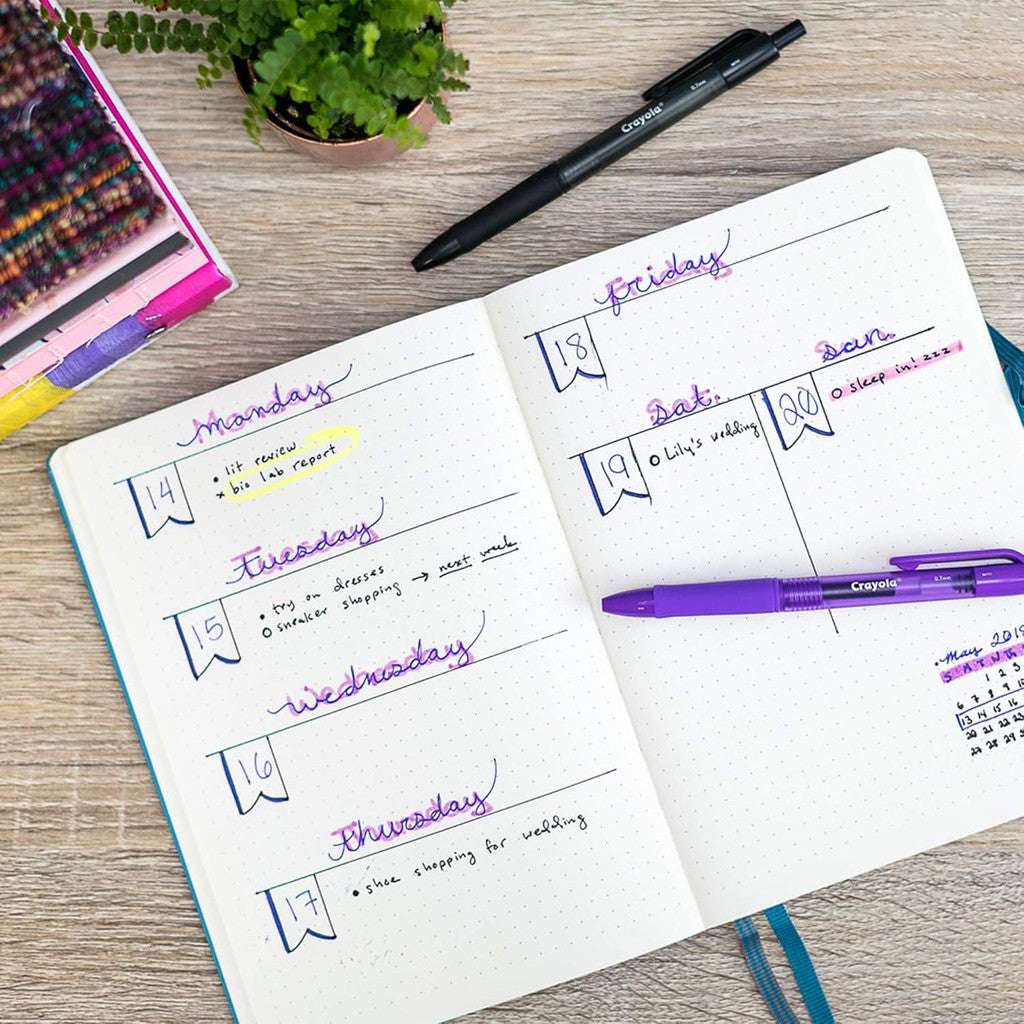 Monday
14
• lit review
x bio lab report
Tuesday
15
• try on dresses
o sneaker shopping → next week
Wednesday
16
Thursday
17
• shoe shopping for wedding
Friday
18
Sat.
19
o Lily's wedding
Sun.
20
o sleep in! zzz
• May 2019
S M T W T F
1 2 3
6 7 8 9 10
13 14 15 16
20 21 22 23
27 28 29
Crayola
0.7mm
Crayola
0.7mm